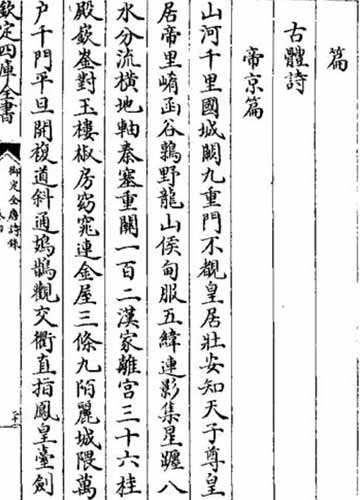 篇
古體詩
帝京篇
山河千里國城闕九重門不覩皇居壯安知天子尊皇
居帝里崤函谷鶉野龍山侯甸服五緯連影集星躔八
水分流横地軸秦塞重關一百二漢家離宫三十六桂
殿嶔崟對玉樓椒房窈窕連金屋三條九陌麗城隈萬
户千門平旦開複道斜通鳷鵲觀交衢直指鳳皇臺劍
欽定四庫全書
御定全唐詩錄